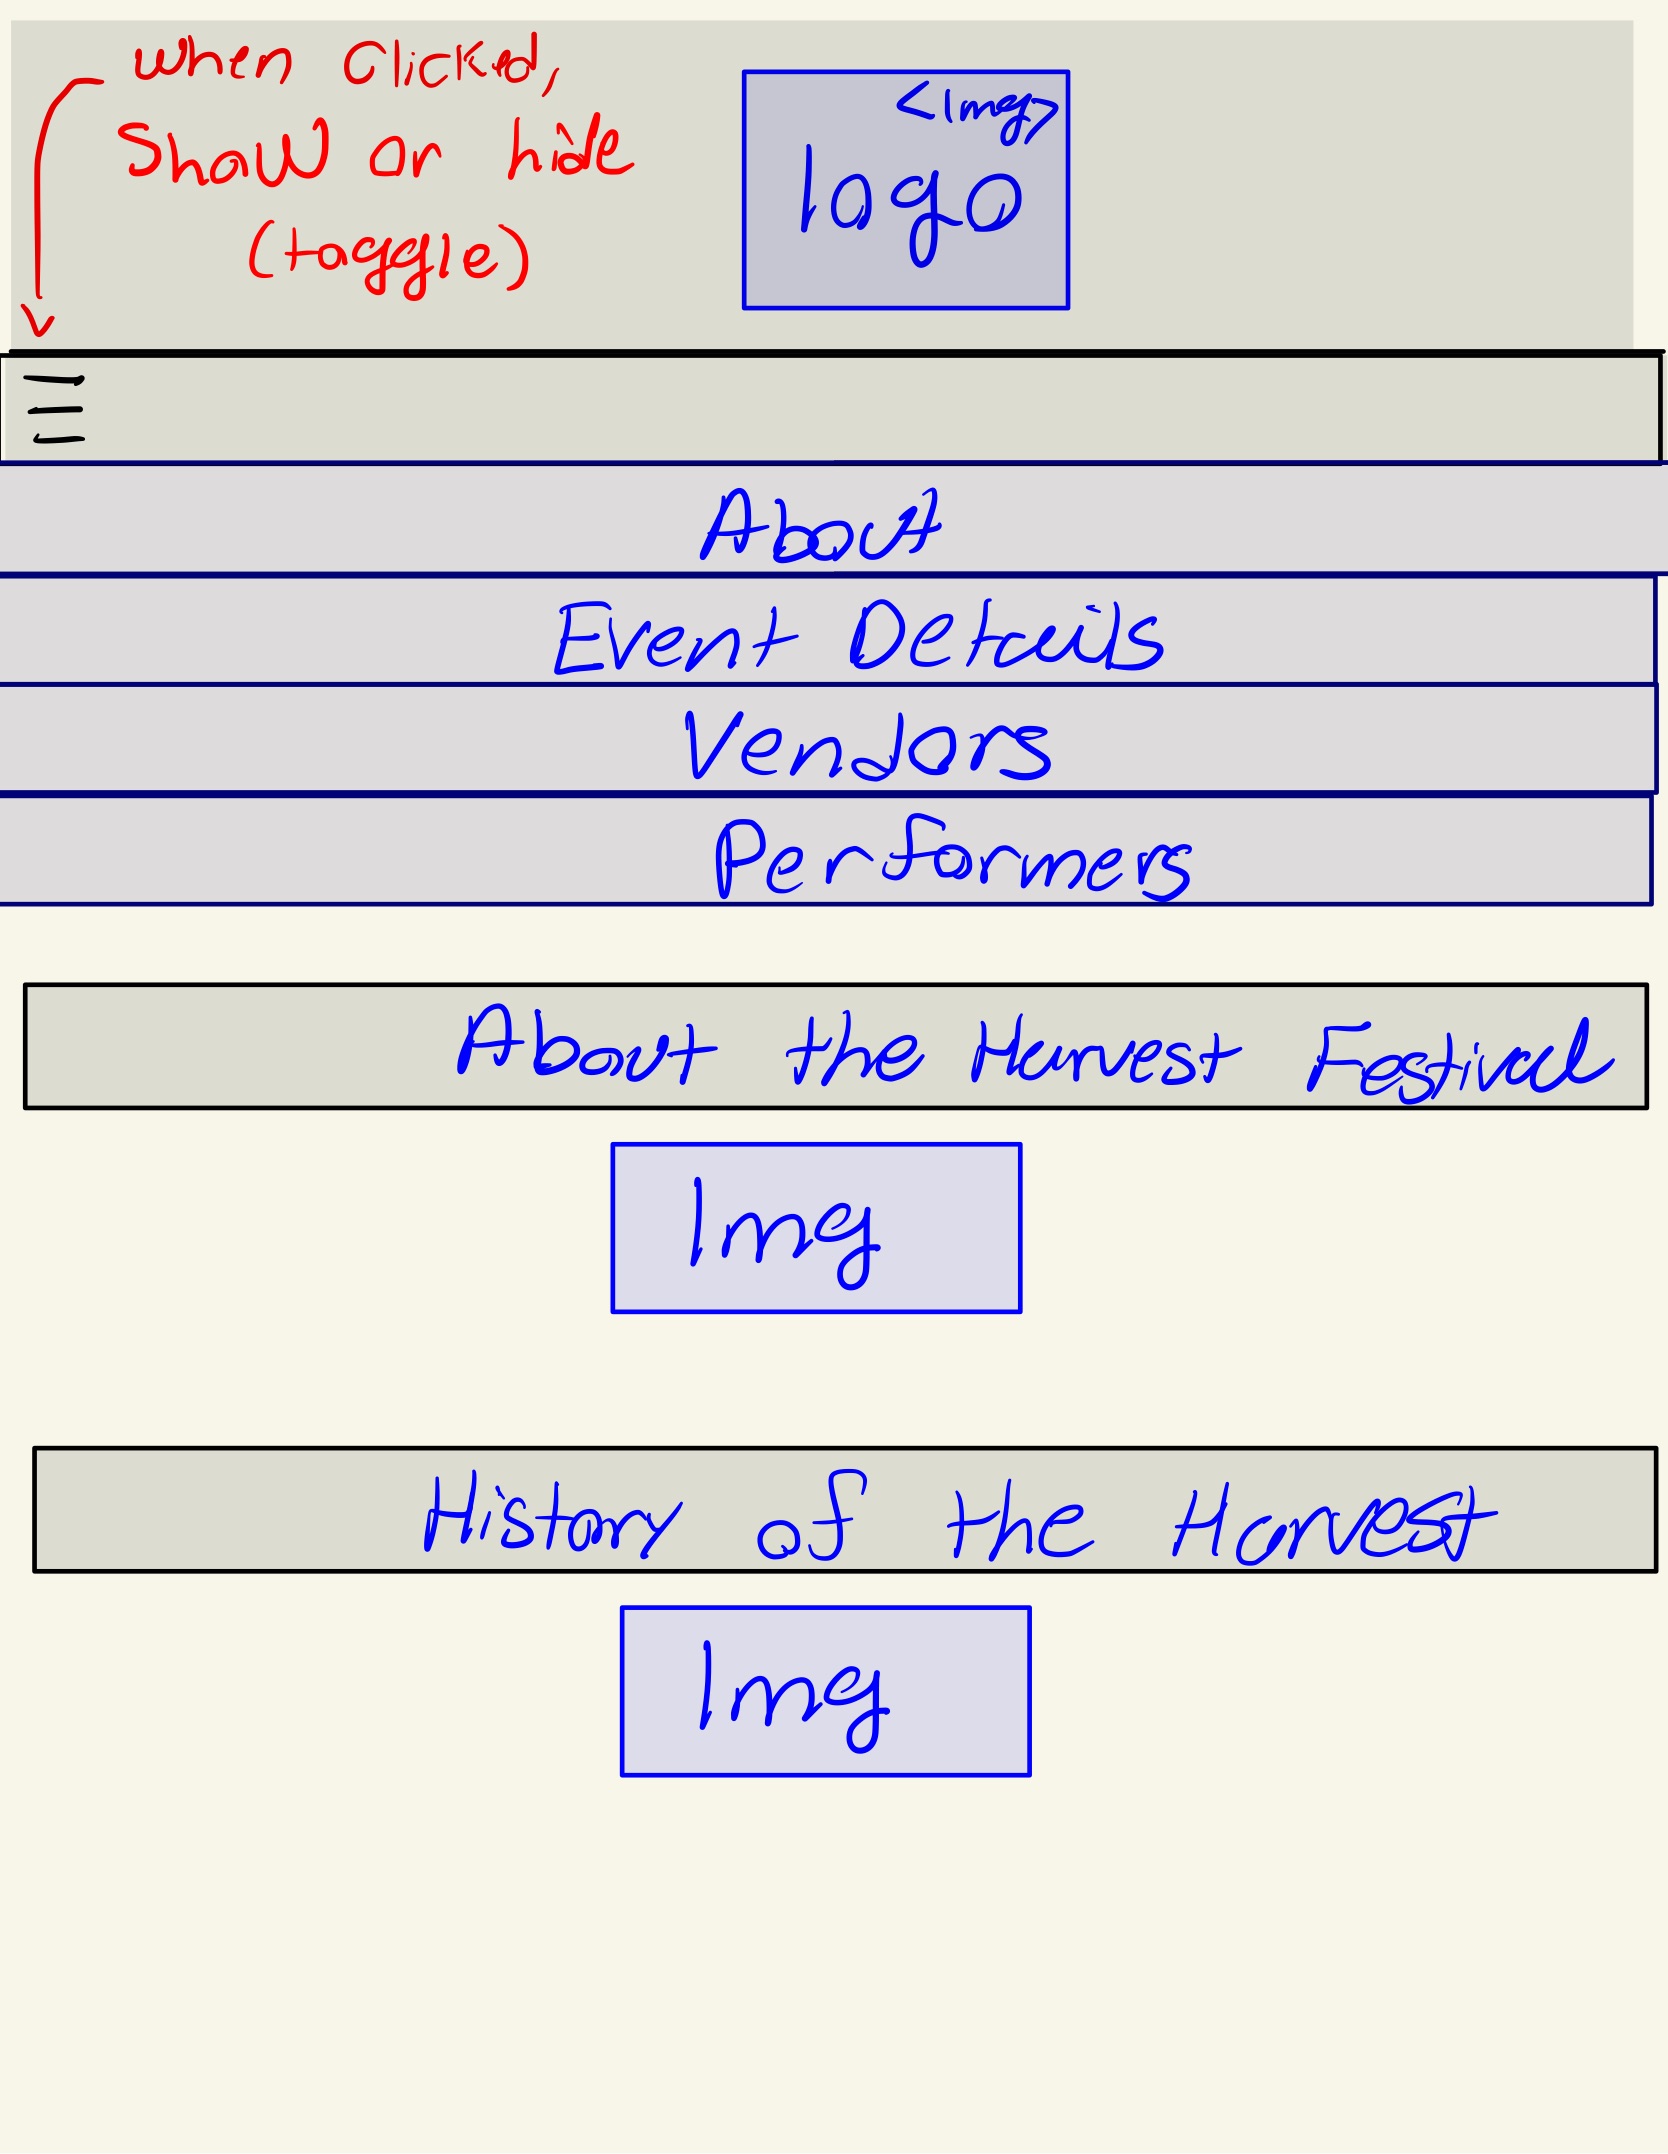 when Clicked,
Show or hide
(toggle)
<Img>
logo
About
Event Details
Vendors
Performers
About the Harvest Festival
Img
History of the Harvest
Img